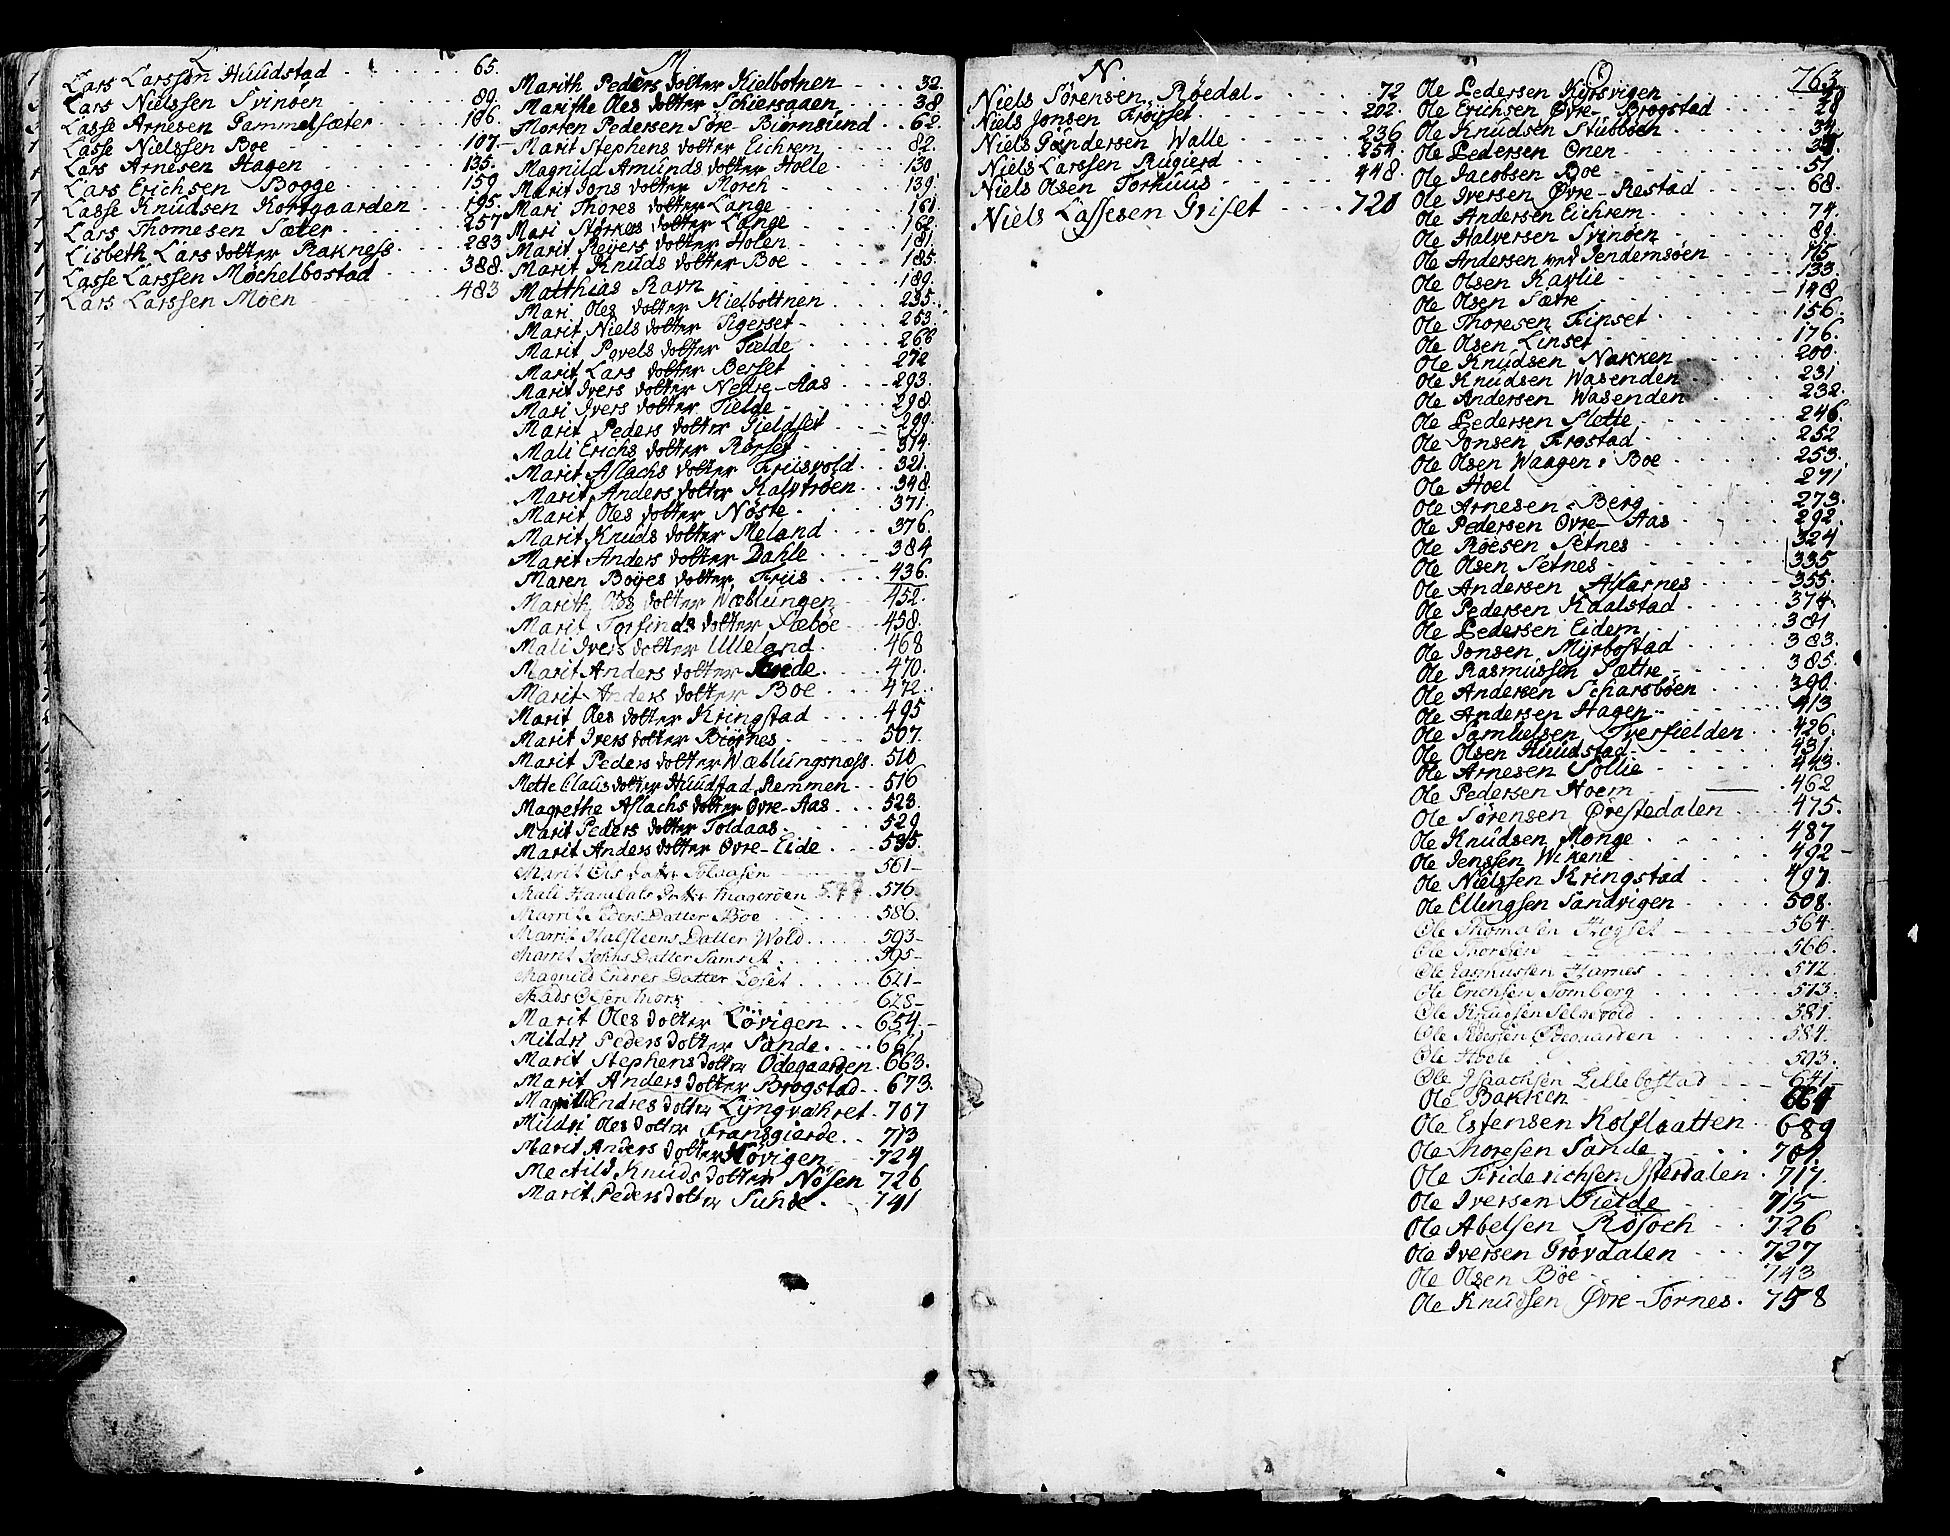 L.
Lars Larssen Huudstad 65.
Lars Nielssen Svinøen 89.
Lasse Arnesen Gammelsæter 106.
Lasse Nielssen Boe 107.
Lars Arnesen Hagen 135.
Lars Erichsen Bogge 159.
Lasse Knudsen Kortgaarden 195.
Lars Thomesen Sæter 257
Lisbeth Lars dotter Rakness 283
Lasse Larssen Mochelbostad 388.
Lars Larssen Moen 483
M.
Marith Peders dotter Kielbotnen 32.
Marithe Oles dotter Schiersaaen 38
Morten Pedersen Søre-Biørnsund 62.
Marit Stephens dotter Eichrem 82.
Magnild Amunds dotter Holle 130
Marit Jons dotter Morch 139.
Mari Thores dotter Lange 161
Mari Størkers dotter Lange 162.
Marit Reyers dotter Holen 181.
Marit Knuds dotter Boe 185.
Matthias Ravn 189.
Mari Oles dotter Kielbottnen 235.
Marit Niels dotter Tigerset 253.
Marit Povels dotter Fielde 266
Marit Lars dotter Berset 272
Marit Ivers dotter Nedre-Aas 293.
Mari Ivers dotter Fielde 298.
Marit Peders dotter Gieldset 299.
Mali Erichs dotter Rørset 314.
Marit Aslachs dotter Friisvold 321.
Marit Anders dotter Kalvtrøen 348.
Marit Oles dotter Nøste 371.
Marit Knuds dotter Meland 376.
Marit Anders dotter Dahle 384
Maren Boyes dotter Friis 436.
Marith Oles dotter Wæblungen 452.
Marit Torfinds dotter Sæbøe 458.
Mali Ivers dotter Ulleland 468
Marit Anders dotter 470.
Marit Anders dotter Boe 472.
Marit Oles dotter Kringstad 495
Marit Ivers dotter Biørnes 507.
Marit Peders dotter Wæblungsnæss 510
Mette Claus dotter Huudstad, Remmen 516
Magrethe Aslachs dotter Øvre-Aas 523.
Marit Peders dotter Toldaas 529
Marit Anders dotter Øvre-Eide 535.
Marit Ols datter 561
Mali datter 547 576
Marrit Peders Datter Bøe 586.
Marrit Halsteens Datter Wold 593
Marrit Johns Datter 595
Magnild Endres Datter Løset 621
Mads Olsen Mork 628
Marit Oles dotter Løvigen 654.
Mildri Peders dotter Sande 661
Marit Stephens dotter Ødegaarden 663.
Marit Anders dotter Brogstad 673.
Magnild Endres dotter Lyngvahret 707
Mildri Oles dotter Fransgierde 713
Marit Anders dotter Høvigen 724
Mectild Knuds dotter Nøsen 726
Marit Peders dotter Sunde 741
N.
Niels Sørensen Røedal 72
Niels Jonsen Frøyset 202.
Niels Gundersen Walle 236
Niels Larssen Rugierd 254.
Niels Olsen Torhuus 448.
Niels Lassesen Griset 721
O 763
Ole Pedersen Kyrsvigen
Ole Erichsen Øvre-Brogstad 28
Ole Knudsen Stubbøen 34
Ole Pedersen Onen
Ole Jacobsen Boe 51
Ole Iversen Øvre-Restad 68.
Ole Andersen Eichrem 74.
Ole Halversen Svinøen 89.
Ole Andersen ved Jendemsøen 115
Ole Olsen Kavlie 133.
Ole Olsen Sætre 148
Ole Thoresen Finset 156.
Ole Olsen Linset 176.
Ole Knudsen Nakken 200.
Ole Knudsen Wasenden 231
Ole Andersen Wasenden 232
Ole Pedersen Slotte 246
Ole Jonsen Frostad 252
Ole Olsen Waagen i Boe 253.
Ole Hoel 271
Ole Arnesen Berg 273.
Ole Pedersen Øvre-Aas 292.
Ole Røesen Setnes 324
Ole Olsen Setnes 335
Ole Andersen Alfarnes 355.
Ole Pedersen Kaalstad 374.
Ole Pedersen Eidem 381
Ole Jonsen Myrbostad 383.
Ole Rasmussen Sættre 385.
Ole Andersen Scharsbøen 390.
Ole Andersen Hagen 413
Ole Samuelsen Tverfielden 426.
Ole Olsen Huudstad 431.
Ole Arnesen Sollie 443.
Ole Pedersen Hoem 462
Ole Sørensen Ørestedalen 475.
Ole Knudsen Monge 487
Ole Jenssen Wikene 492
Ole Nielssen Kringstad 497.
Ole Ellingsen Sandvigen 508.
Ole Thomasen 564.
Ole Thoresen 566.
Ole Rasmussen Harnes 572.
Ole Erichsen Tomberg 573.
Ole Knudsen Selsevold 581.
Ole Pedersen Boegaarden 584.
Ole Hoele 593.
Ole Isaachsen Lillebostad 641
Ole Bakken 664
Ole Estensen Kolflaatten 689
Ole Thoresen Sande 701
Ole Friderichsen Isterdalen 717.
Ole Iversen Fielde 715
Ole Abelsen Røsoch 726
Ole Iversen Grøvdalen 727
Ole Olsen Bøe 743
Ole Knudsen Øvre-Tornes 758